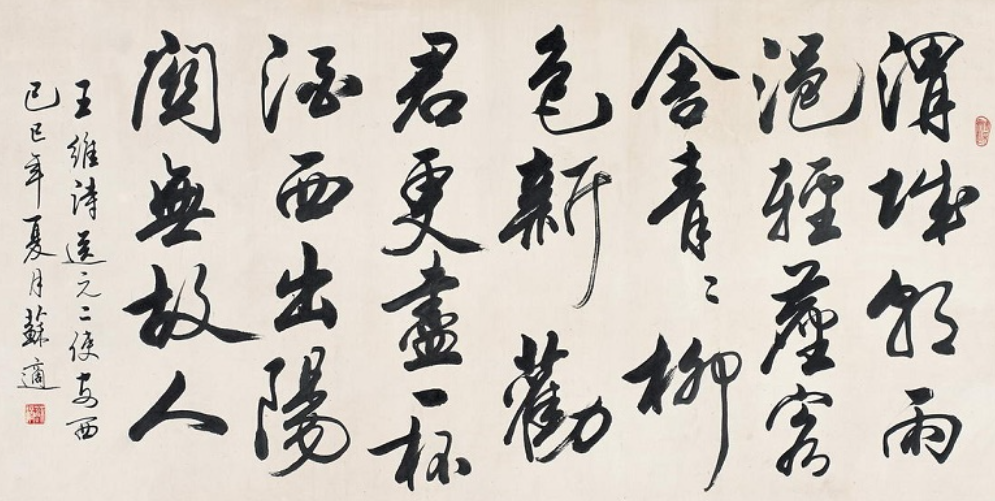 渭城朝雨
浥輕塵客
舍青〻柳
色新勸
君更盡一杯
酒西出陽
關無故人
王維詩送元二使安西
己巳年夏月蘇適